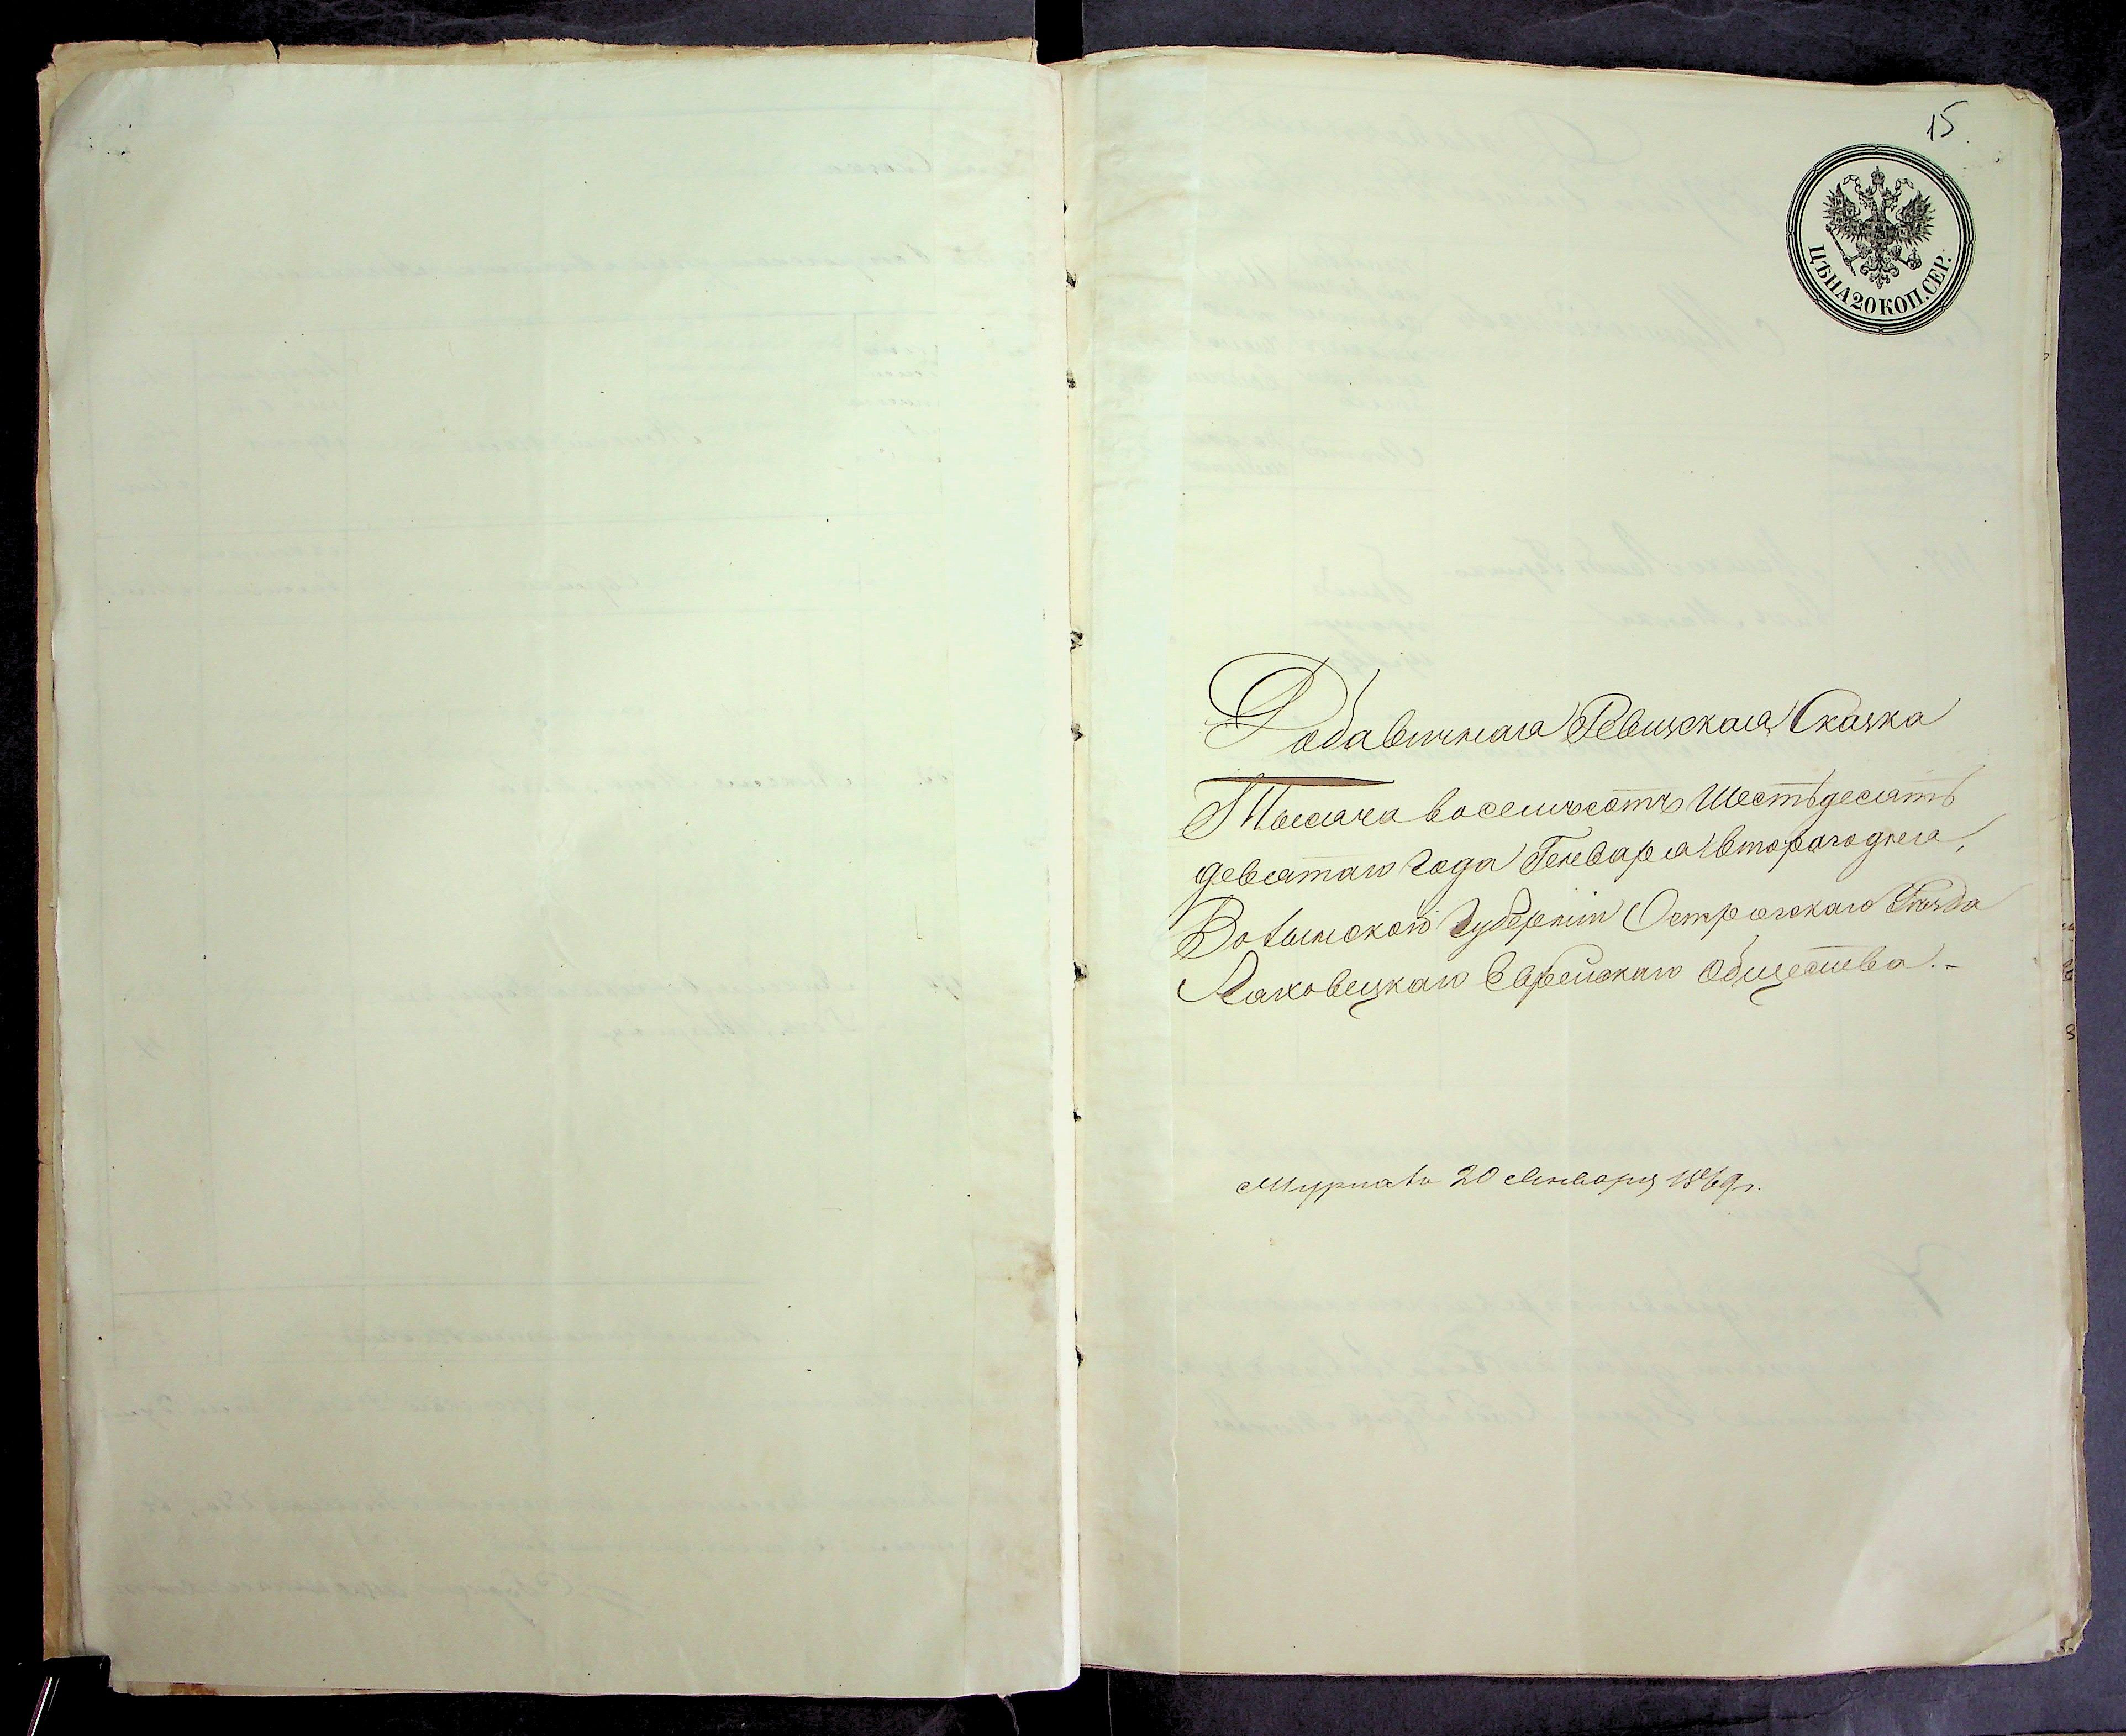 15
ЦѢНА 20 КОП. СЕР.
Добавичная Ревизская Сказка
Тысяча восемьсотъ Шестьдесятъ
девятаго года Генваря второго дня,
Волынской Губерніи Острогскаго Уѣзда
Ляховецкаго Еврейскаго Общества.-
20 Января 1869 г.